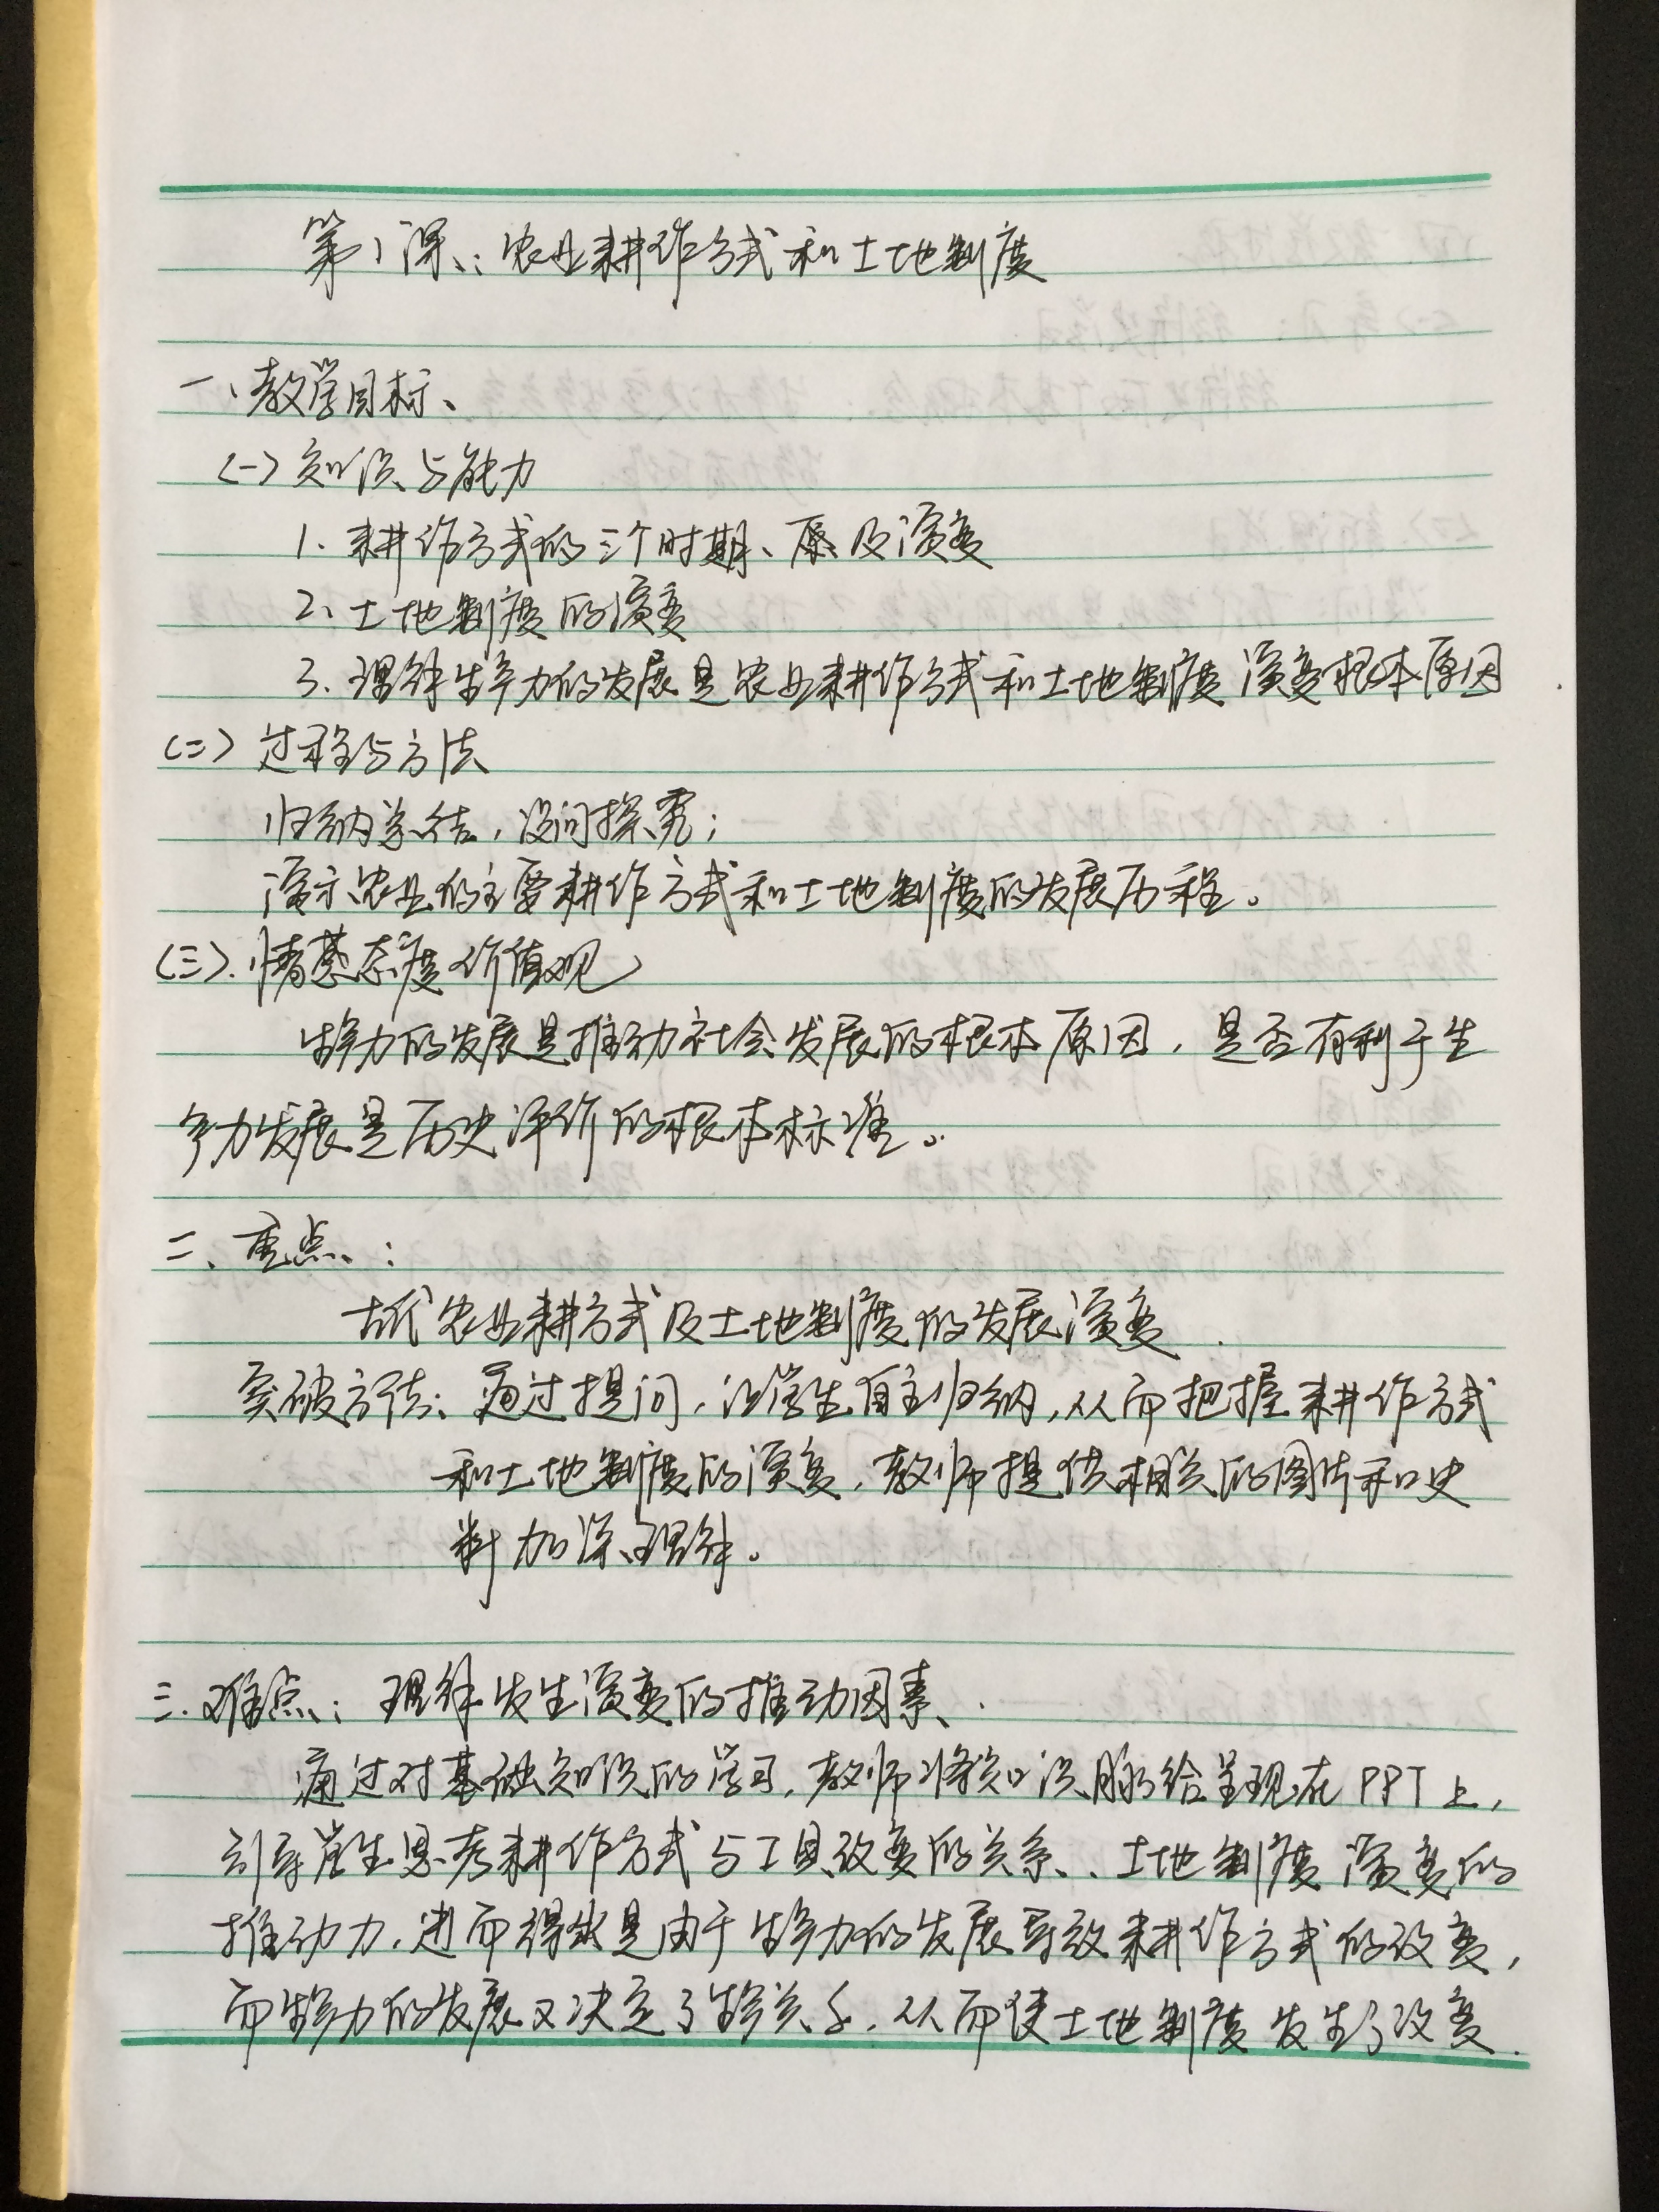 第1课:农业耕作方式和土地制度
一、教学目标、
(一)知识与能力
1. 耕作方式的三个时期、原及演变
2、土地制度的演变
3. 理解生产力的发展是农业耕作方式和土地制度演变根本原因
(二)过程与方法
归纳总结,设问探究;
演示农业的主要耕作方式和土地制度的发展历程。
(三).情感态度价值观
生产力的发展是推动社会发展的根本原因,是否有利于生
产力发展是历史评价的根本标准。
二、重点:
古代农业耕方式及土地制度的发展演变
突破方法:通过提问,让学生自主归纳,从而把握耕作方式
和土地制度的演变,教师提供相关的图片和史
料加深理解。
三.难点:理解发生演变的推动因素、
通过对基础知识的学习,教师将知识脉络呈现在PPT上,
引导学生思考耕作方式与工具改变的关系、土地制度演变的
推动力,进而得出是由于生产力的发展导致耕作方式的改变,
而生产力的发展又决定了生产关系,从而使土地制度发生了改变.